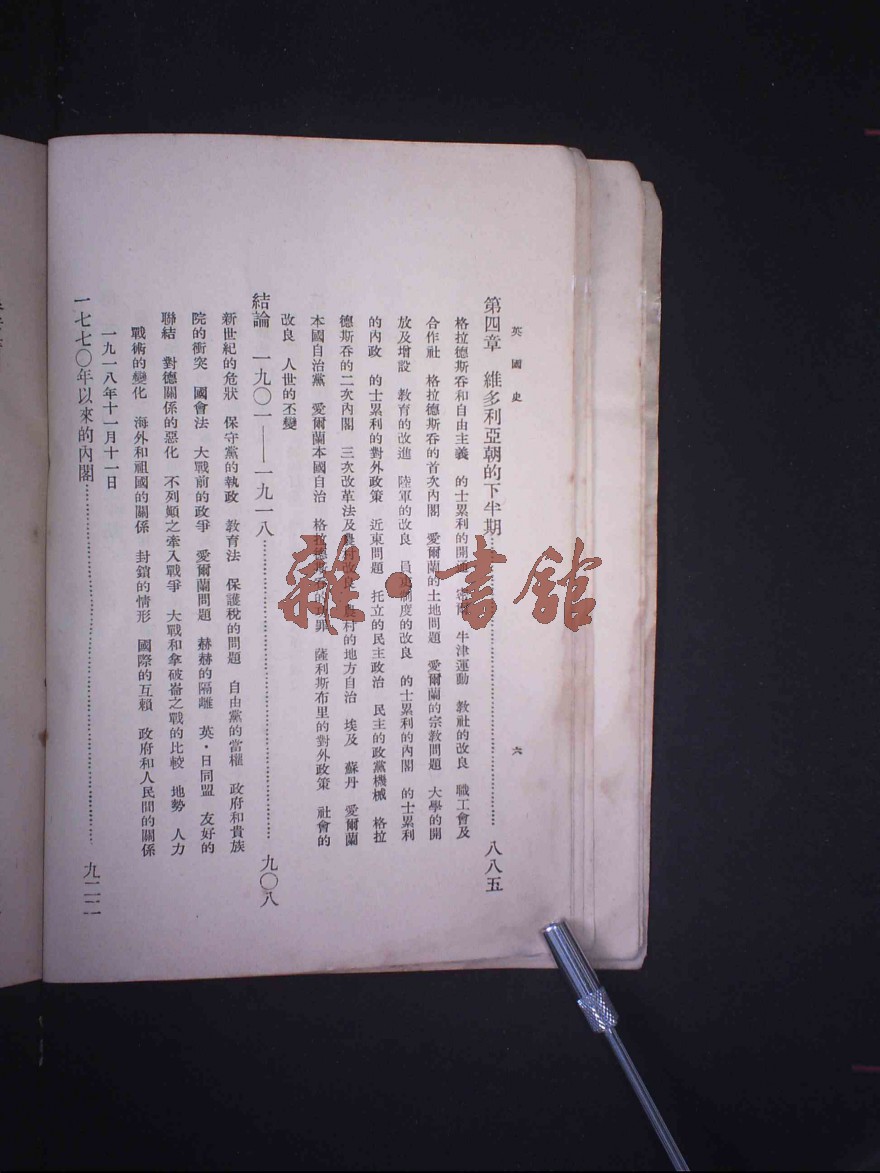 英國史
六
第四章　維多利亞朝的下半期……八八五
格拉德斯吞和自由主義　的士累利的開明　牛津運動　教社的改良　職工會及
合作社　格拉德斯吞的首次內閣　愛爾蘭的土地問題　愛爾蘭的宗教問題　大學的開
放及增設　教育的改進　陸軍的改良　員吏制度的改良　的士累利的內閣　的士累利
的內政　的士累利的對外政策　近東問題　托立的民主政治　民主的政黨機械　格拉
德斯吞的二次內閣　三次改革法及　村的地方自治　埃及　蘇丹　愛爾蘭
本國自治黨　愛爾蘭本國自治　格拉德　罪　薩利斯布里的對外政策　社會的
改良　人世的丕變
結論　一九〇一——一九一八……九〇八
新世紀的危狀　保守黨的執政　教育法　保護稅的問題　自由黨的當權　政府和貴族
院的衝突　國會法　大戰前的政爭　愛爾蘭問題　赫赫的隔離　英・日同盟　友好的
聯結　對德關係的惡化　不列顛之牽入戰爭　大戰和拿破崙之戰的比較　地勢　人力
戰術的變化　海外和祖國的關係　封鎖的情形　國際的互賴　政府和人民間的關係
一九一八年十一月十一日
一七七〇年以來的內閣……九二二
雜・書館